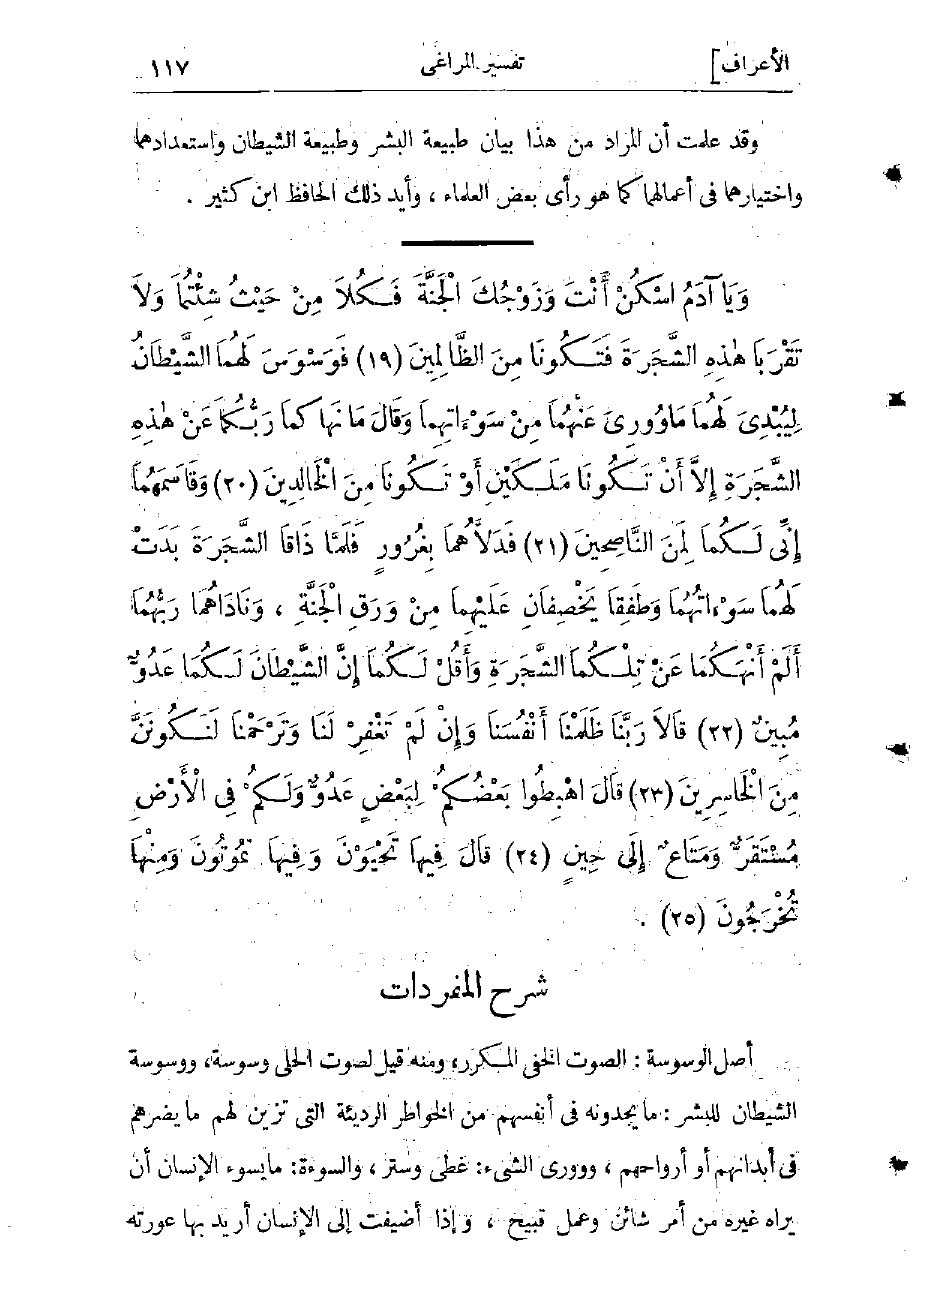 الأعراف]
تفسير المراغى
١١٧
وقد علمت أن المراد من هذا بيان طبيعة البشر وطبيعة الشيطان واستعدادهما
واختيارهما فى أعمالهما كما هو رأى بعض العلماء ، وأيد ذلك الحافظ ابن كثير .
وَيَا آدَمُ اسْكُنْ أَنْتَ وَزَوْجُكَ الْجَنَّةَ فَكُلاَ مِنْ حَيْثُ شِئْتُمَا وَلاَ
تَقْرَبَا هٰذِهِ الشَّجَرَةَ فَتَكُونَا مِنَ الظَّالِمِينَ (١٩) فَوَسْوَسَ لَهُمَا الشَّيْطَانُ
لِيُبْدِىَ لَهُمَا مَاوُورِىَ عَنْهُمَا مِنْ سَوْءَاتِهِمَا وَقَالَ مَا نَهَا كُمَا رَبُّكُمَا عَنْ هٰذِهِ
الشَّجَرَةِ إِلاَّ أَنْ تَكُونَا مَلَكَيْنِ أَوْ تَكُونَا مِنَ الْخَالِدِينَ (٢٠) وَقَاسَمَهُمَا
إِنِّى لَكُمَا لَمِنَ النَّاصِحِينَ (٢١) فَدَلاَّهُمَا بِغُرُورٍ فَلَمَّا ذَاقَا الشَّجَرَةَ بَدَتْ
لَهُمَا سَوْءَاتُهُمَا وَطَفِقَا يَخْصِفَانِ عَلَيْهِمَا مِنْ وَرَقِ الْجَنَّةِ ، وَنَادَاهُمَا رَبُّهُمَا
أَلَمْ أَنْهَكُمَا عَنْ تِلْكُمَا الشَّجَرَةِ وَأَقُلْ لَكُمَا إِنَّ الشَّيْطَانَ لَكُمَا عَدُوٌّ
مُبِينٌ (٢٢) قَالاَ رَبَّنَا ظَلَمْنَا أَنْفُسَنَا وَإِنْ لَمْ تَغْفِرْ لَنَا وَتَرْحَمْنَا لَنَكُونَنَّ
مِنَ الْخَاسِرِينَ (٢٣) قَالَ اهْبِطُوا بَعْضُكُمْ لِبَعْضٍ عَدُوٌّ وَلَكُمْ فِى الْأَرْضِ
مُسْتَقَرٌّ وَمَتَاعٌ إِلَى حِينٍ (٢٤) قَالَ فِيهَا تَحْيَوْنَ وَفِيهَا تَمُوتُونَ وَمِنْهَا
تُخْرَجُونَ (٢٥) .
شرح المفردات
أصل الوسوسة : الصوت الخفى المكرر، ومنه قيل لصوت الحلى وسوسة، ووسوسة
الشيطان للبشر : ما يجدونه فى أنفسهم من الخواطر الرديئة التى تزين لهم ما يضرهم
فى أبدانهم أو أرواحهم ، وووري الشىء: غطى وستر ، والسوءة: مايسوء الإنسان أن
يراه غيره من أمر شائن وعمل قبيح ، وإذا أضيفت إلى الإنسان أريد بها عورته